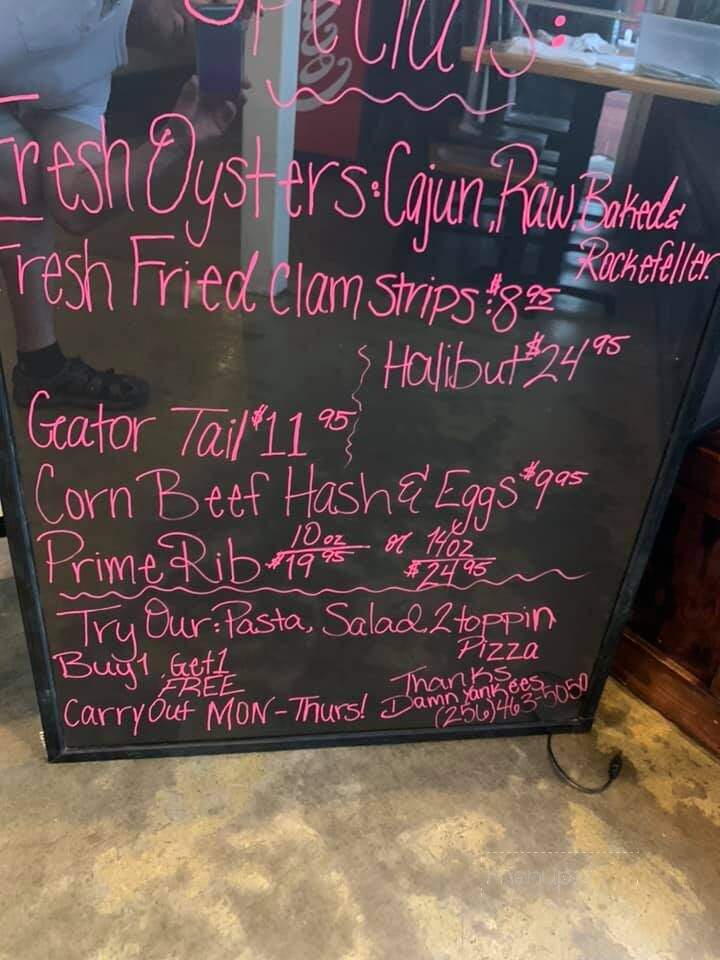 Specials:
Fresh Oysters: Cajun, Raw, Baked &
Rockefeller.
Fresh Fried Clam Strips: $8 95
Halibut $24 95
Geator Tail $11 95
Corn Beef Hash & Eggs $9 95
Prime Rib 10 oz $19 95 or 14oz $24 95
Try Our: Pasta, Salad, 2 toppin
Pizza
Buy 1 Get 1
FREE
Carry Out MON - Thurs!
Thanks
Damn Yankees
(256) 463-5050